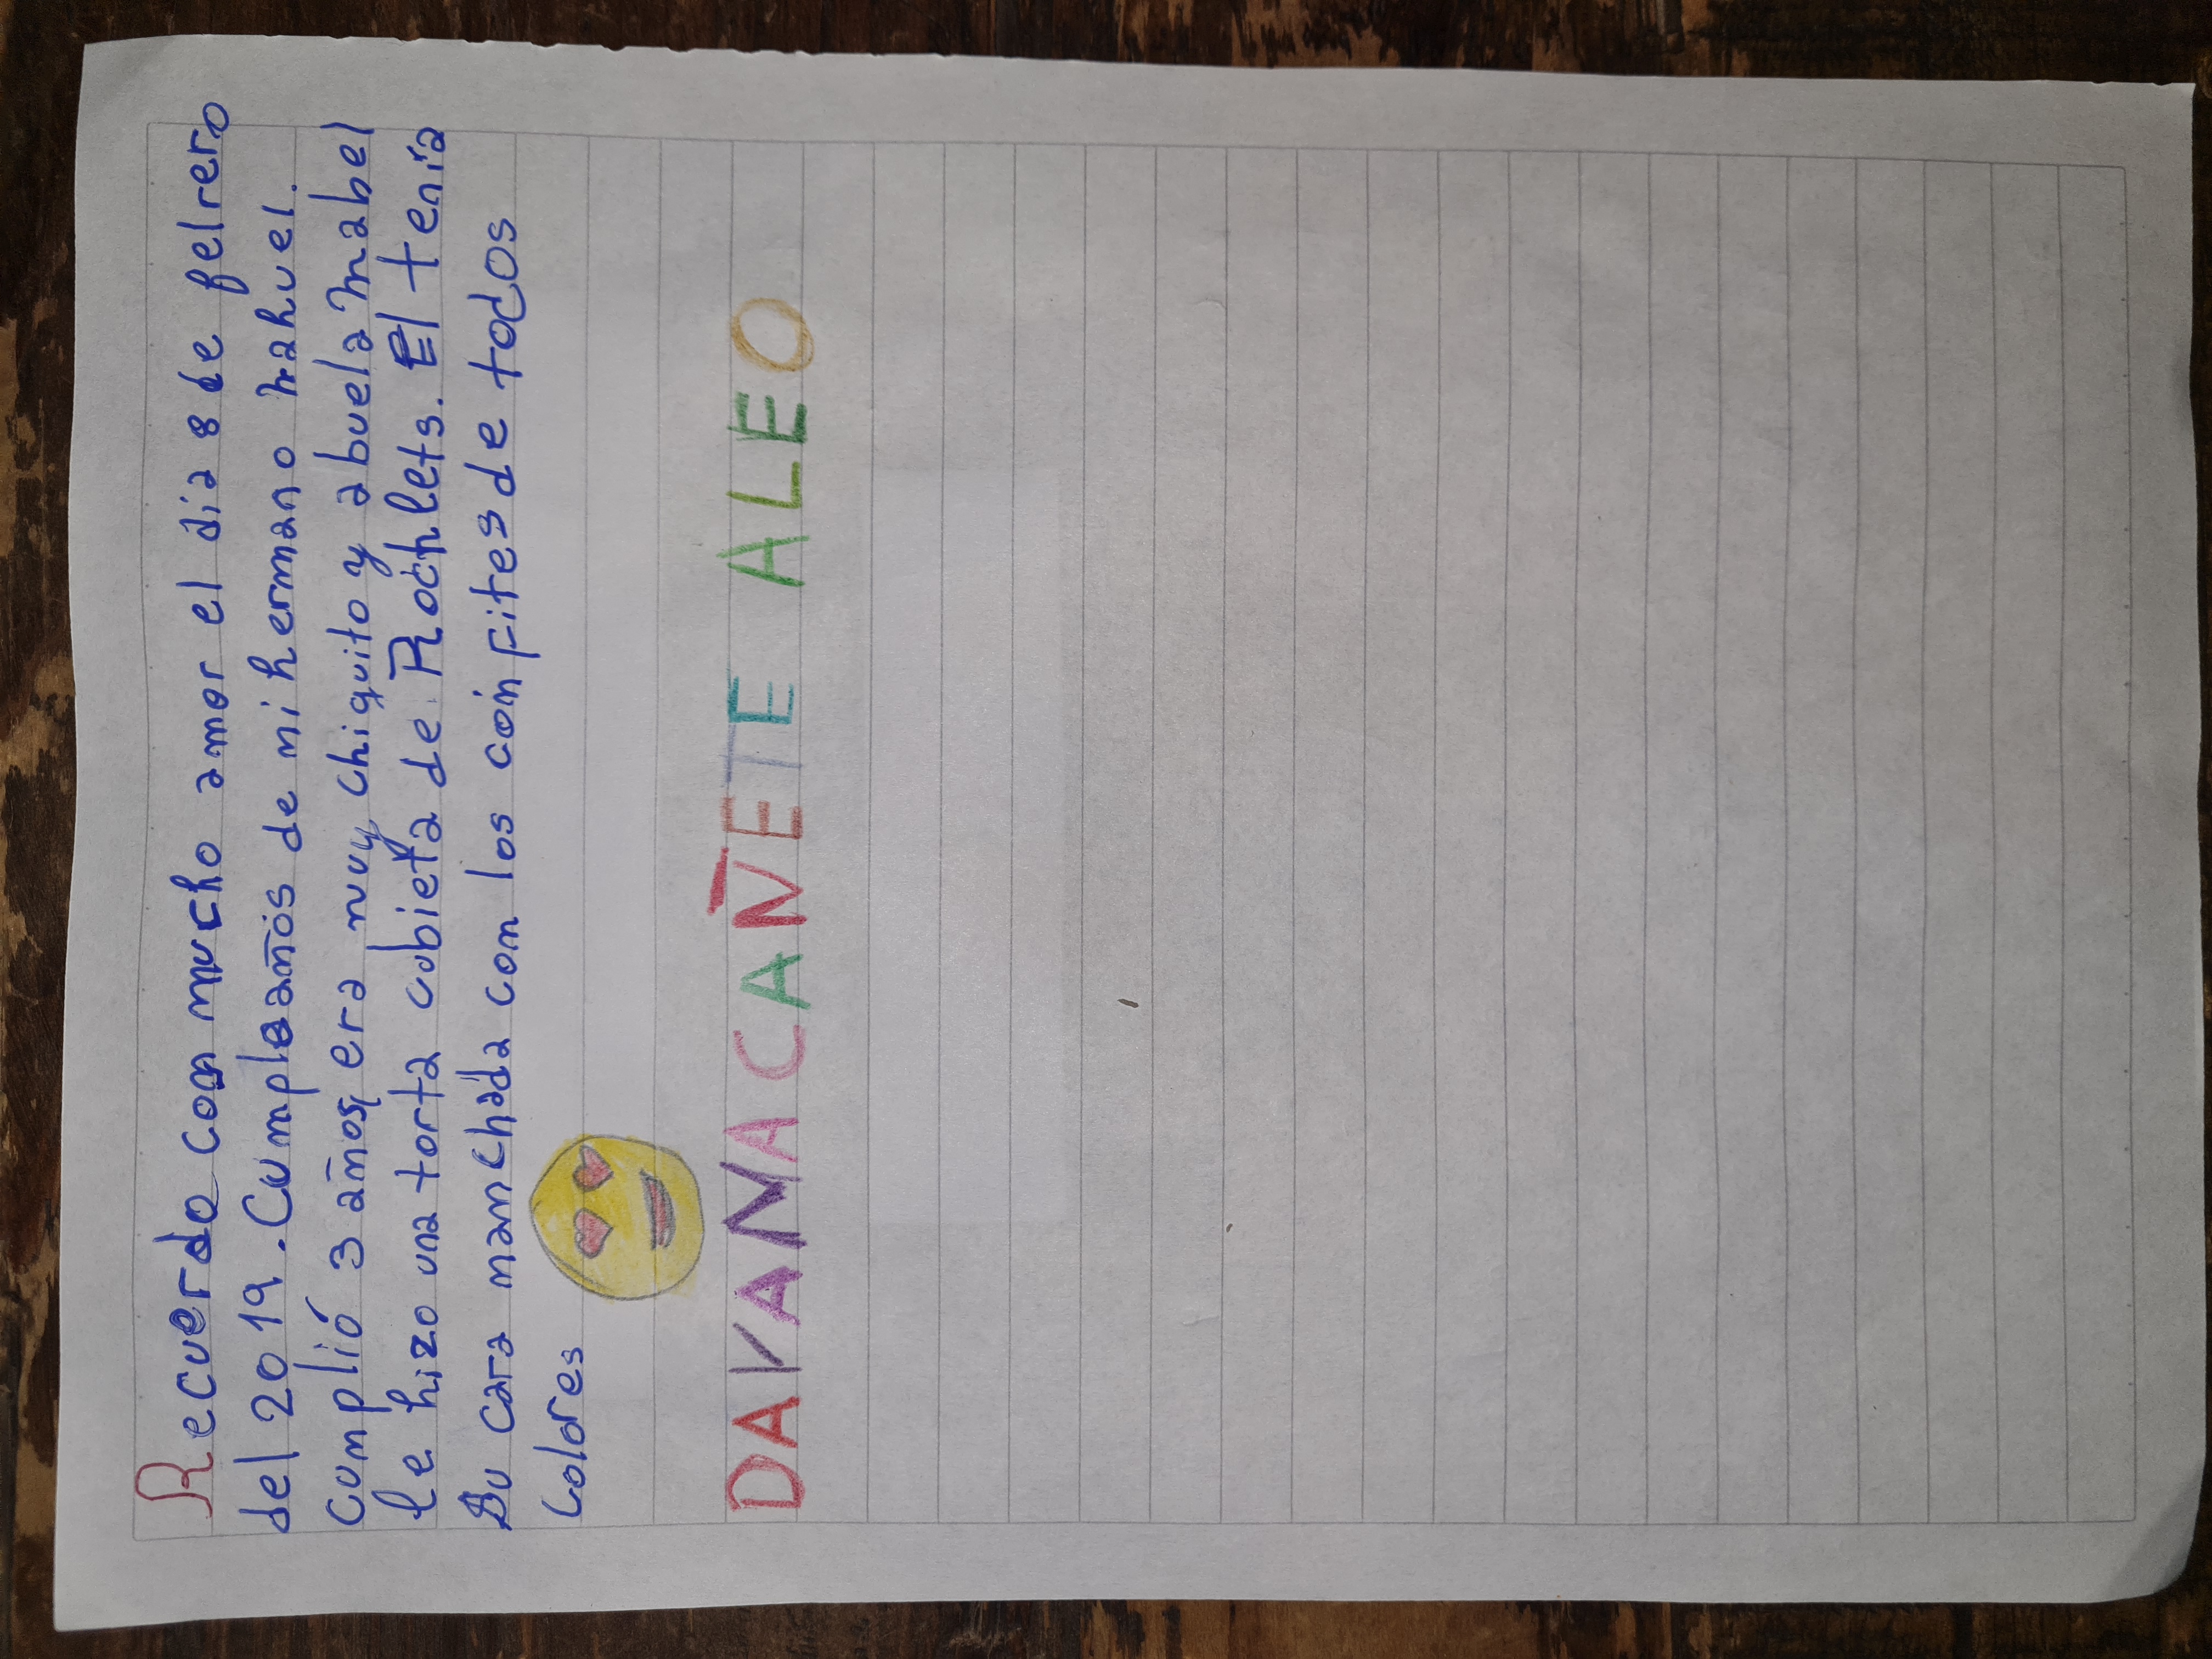 Recuerdo con mucho amor el día 8 de felrero
del 2019. Cumpleaños de mi hermano nahuel.
Cumplió 3 años, era muy chiquito y abuela mabel
le hizo una torta cubieta de Rochlets. El tenía
Su cara manchada con los confites de todos
colores
DAVAMA CAÑETE ALEO